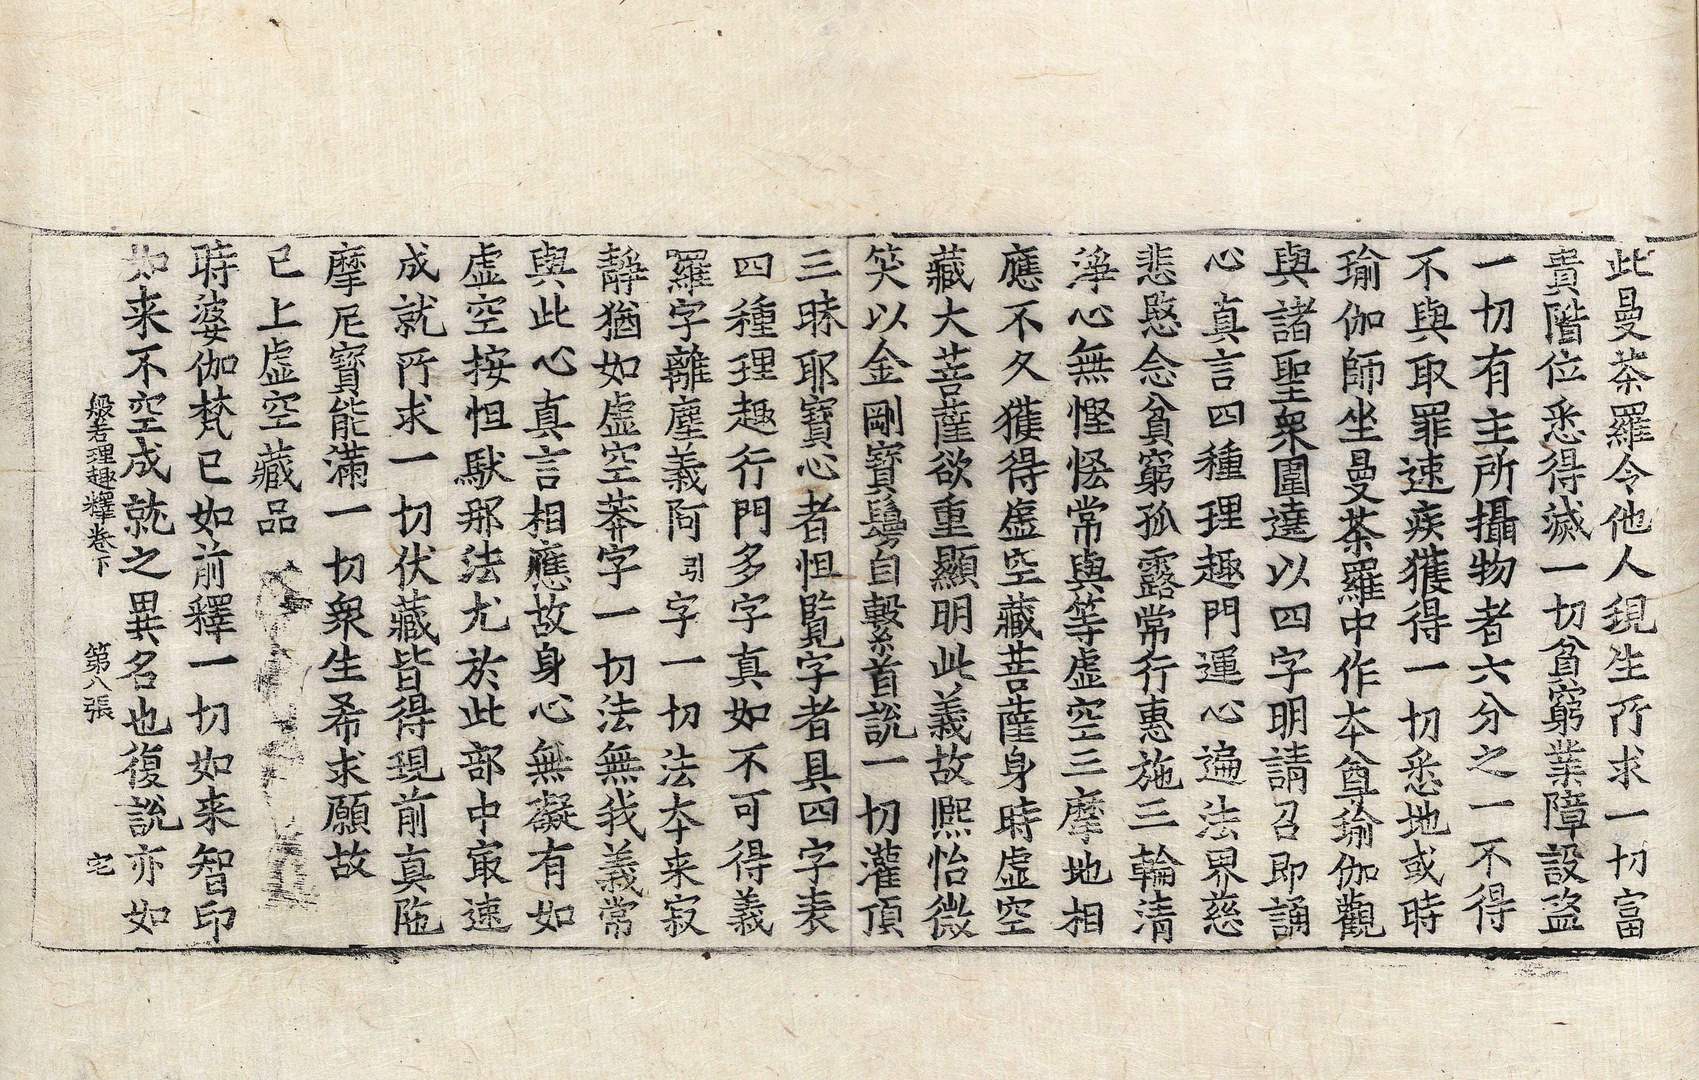 此曼荼羅令他人現生所求一切富
貴階位悉得滅一切貧窮業障設盜
一切有主所攝物者六分之一不得
不與取罪速疾獲得一切悉地或時
瑜伽師坐曼荼羅中作本尊瑜伽觀
與諸聖衆圍遶以四字明請召即誦
心真言四種理趣門運心遍法界慈
悲愍念貧窮孤露常行惠施三輪清
淨心無慳悋常與等虛空三摩地相
應不久獲得虛空藏菩薩身時虛空
藏大菩薩欲重顯明此義故熙怡微
笑以金剛寶鬘自繫首說一切灌頂
三昧耶寶心者怛覽字者具四字表
四種理趣行門多字真如不可得義
羅字離塵義阿引字一切法本来寂
靜猶如虛空莽字一切法無我義常
與此心真言相應故身心無礙有如
虛空按怛馱那法尤於此部中㝡速
成就所求一切伏藏皆得現前真陁
摩尼寶能滿一切衆生希求願故
已上虛空藏品
時婆伽梵已如前釋一切如来智印
如来不空成就之異名也復說亦如
般若理趣釋卷下 第八張 宅